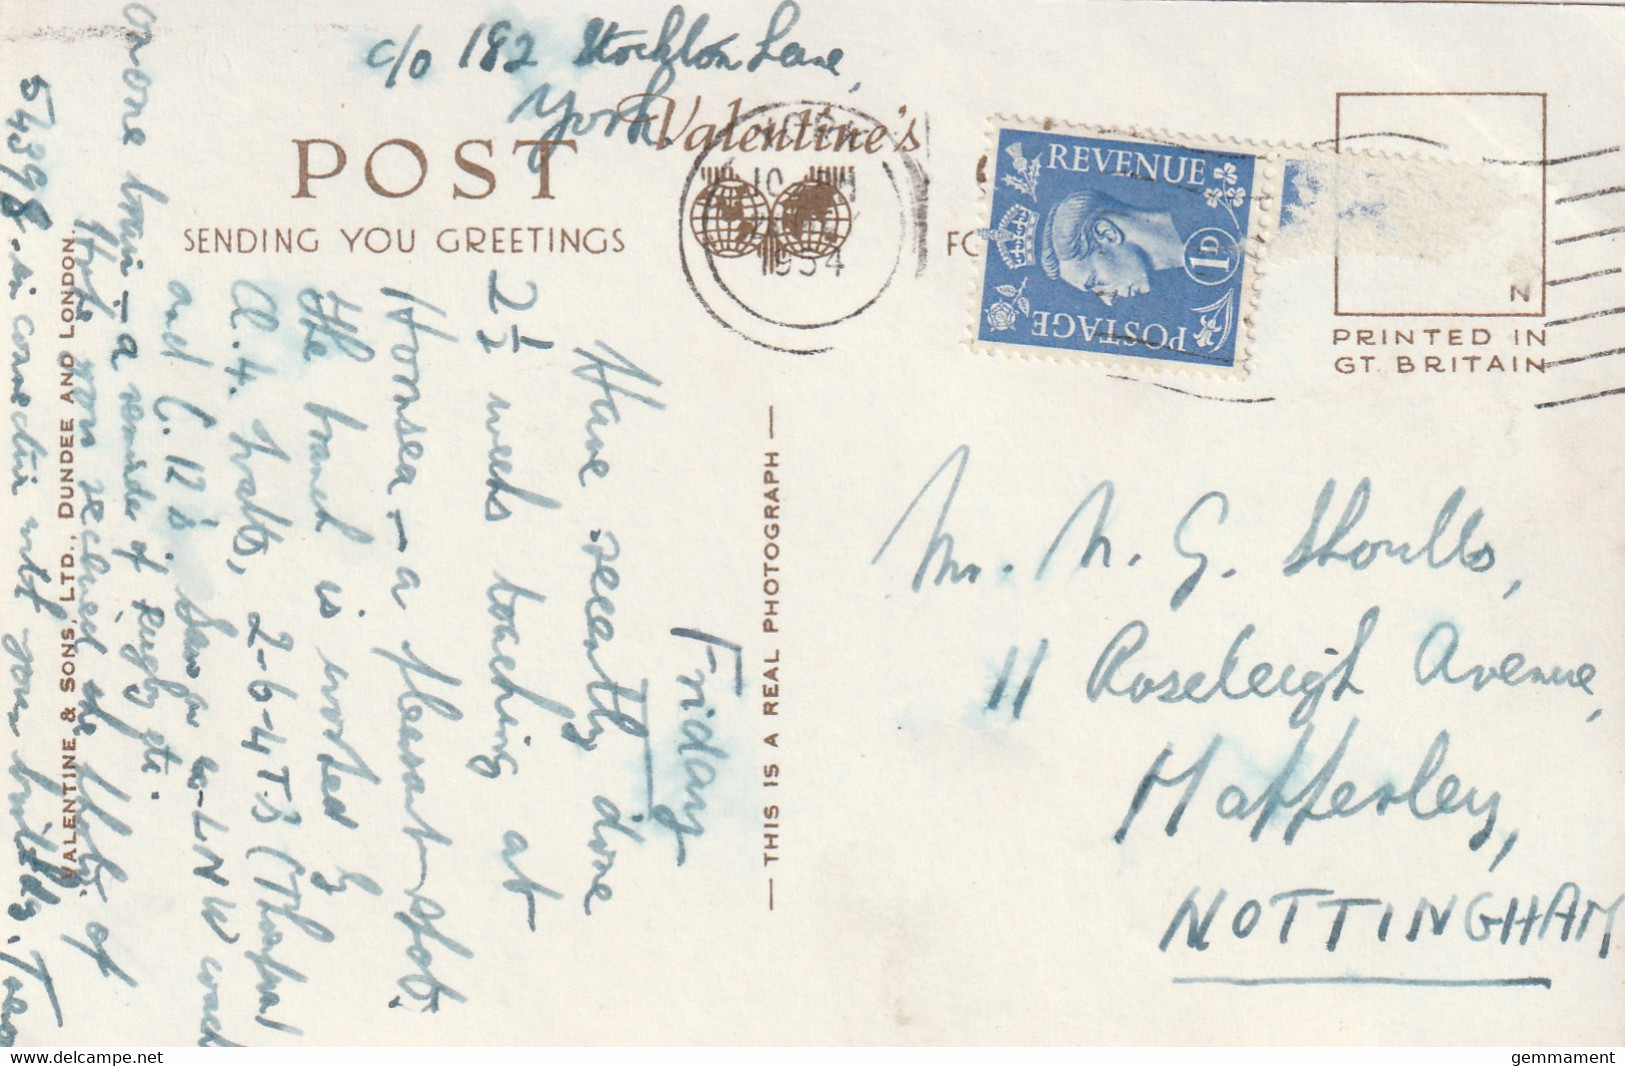 c/o 182 Stockton Lane,
York.
Valentine's
POST
SENDING YOU GREETINGS
1954
REVENUE
1D
POSTAGE
PRINTED IN
GT. BRITAIN
Friday
Have recently done
2½ weeks teaching at
Hornsea — a pleasant spot.
The branch is worked by
A.4. 2-6-4T's (Thompson
and C.12's. Saw an ex-LNW coach
on one train — a reminder of Rugby etc.
Hope you received the photo of
54398 in connection with your
THIS IS A REAL PHOTOGRAPH
VALENTINE & SONS, LTD., DUNDEE AND LONDON.
Mr. N. G. Shoults,
11 Roseleigh Avenue,
Mapperley,
NOTTINGHAM
delcampe.net
gemmament